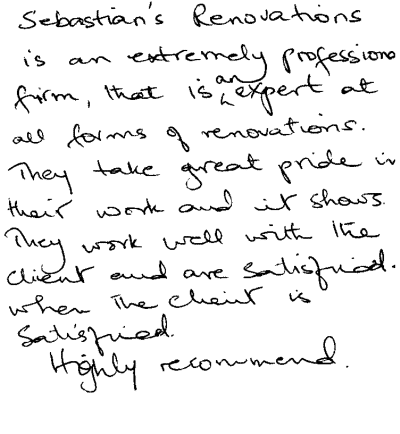 Sebastian's Renovations
is an extremely professiona
firm, that is an expert at
all forms of renovations.
They take great pride in
their work and it shows.
They work well with the
client and are satisfried.
when the client is
satisfried.
Highly recommend.